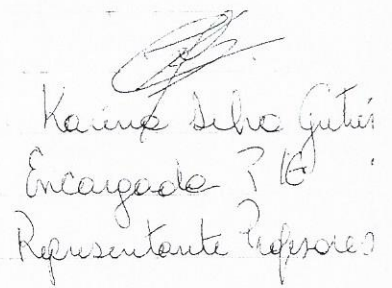 Karina Silva Gutié
Encargada PIE
Representante Profesores